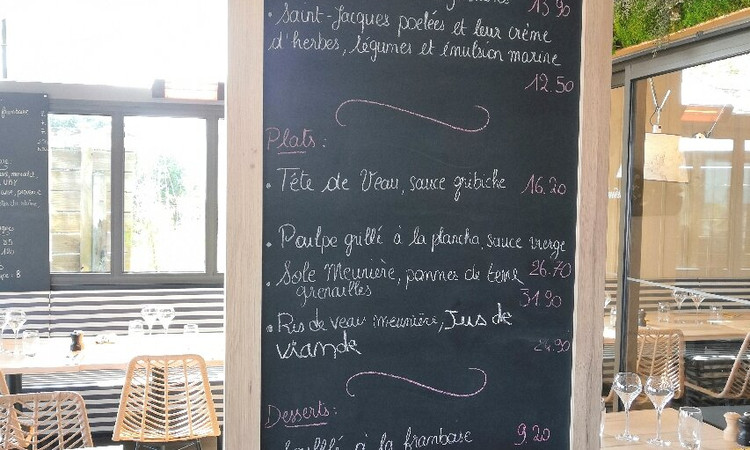 13.90
• Saint-Jacques poelées et leur crème
d'herbes, légumes et émulsion marine
12.50
Plats:
• Tête de Veau, sauce gribiche 16.20
• Poulpe grillé à la plancha, sauce vierge
26.70
• Sole Meunière, pommes de terre
grenailles 31.90
• Ris de veau meunière, Jus de
viande 24.90
Desserts:
Soufflé à la framboise 9.20